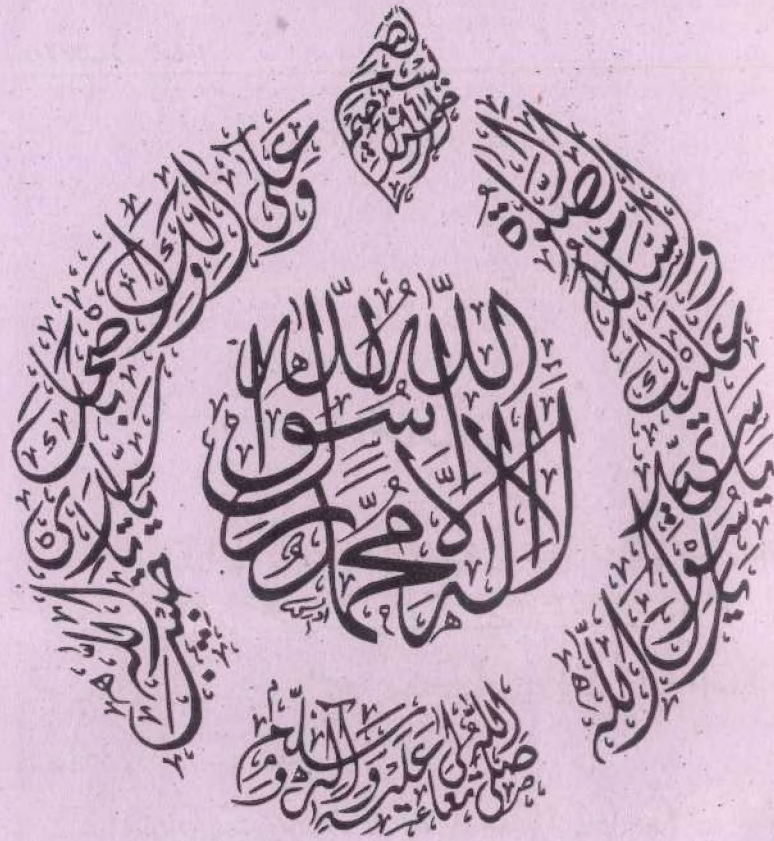 بسم الله الرحمن الرحيم
الصلوٰة والسلام عليك يا سيدى يا رسول الله
وعلى آلك واصحابك يا سيدى يا حبيب الله
لا اله الا الله محمد رسول الله
صلى الله تعالى عليه وآله وسلم